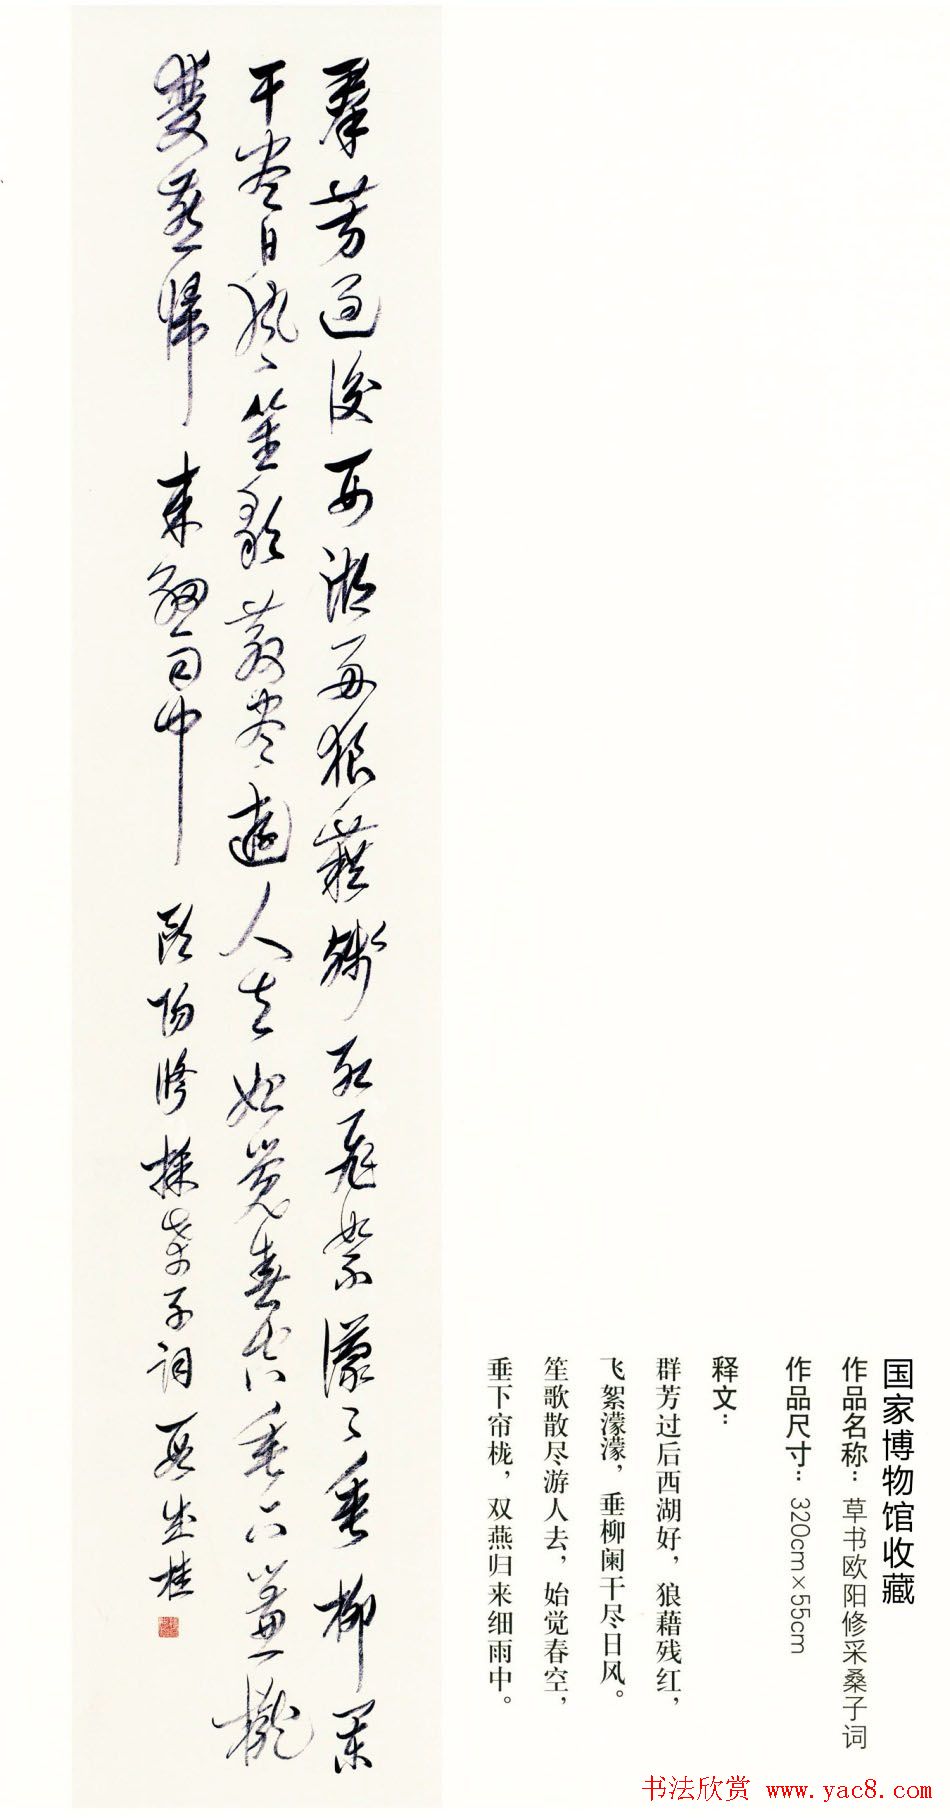 国家博物馆收藏
作品名称：草书欧阳修采桑子词
作品尺寸：320cm×55cm
释文：
群芳过后西湖好，狼藉残红，
飞絮濛濛，垂柳阑干尽日风。
笙歌散尽游人去，始觉春空，
垂下帘栊，双燕归来细雨中。
羣芳過後西湖好狼藉殘紅飛絮濛々垂柳闌
干盡日風笙歌散盡遊人去始覺春空垂下簾櫳
雙燕歸來細雨中 歐陽脩採桑子詞 段成桂
书法欣赏 www.yac8.com